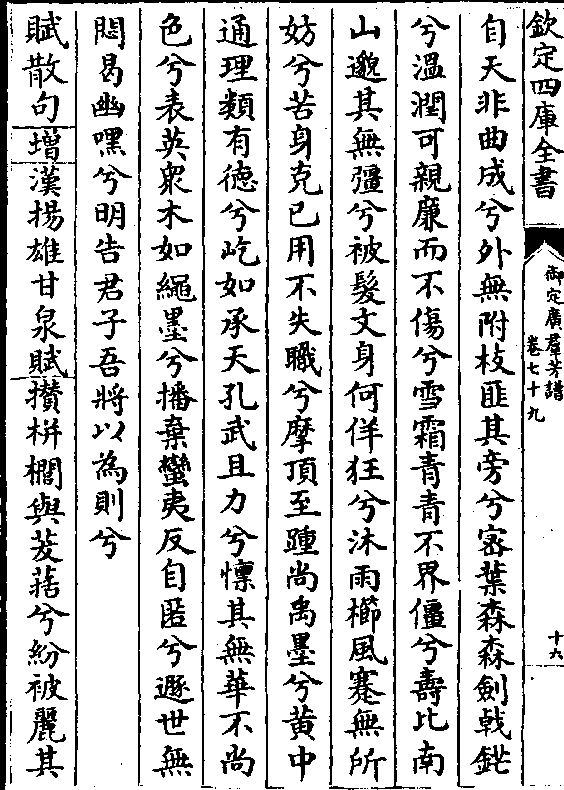 欽定四庫全書
御定廣羣芳譜
卷七十九
十六
自天非曲成兮外無附枝匪其旁兮宻葉森森劍戟鋩
兮溫潤可親廉而不傷兮雪霜青青不畀僵兮壽比南
山邈其無彊兮被髮文身何佯狂兮沐雨櫛風蹇無所
妨兮苦身克已用不失職兮摩頂至踵尚禹墨兮黄中
通理類有德兮屹如承天孔武且力兮懍其無華不尚
色兮表英衆木如繩墨兮播棄蠻夷反自匿兮遯世無
悶曷幽嘿兮明告君子吾將以為則兮
賦散句增漢揚雄甘泉賦攢栟櫚與茇葀兮紛被麗其